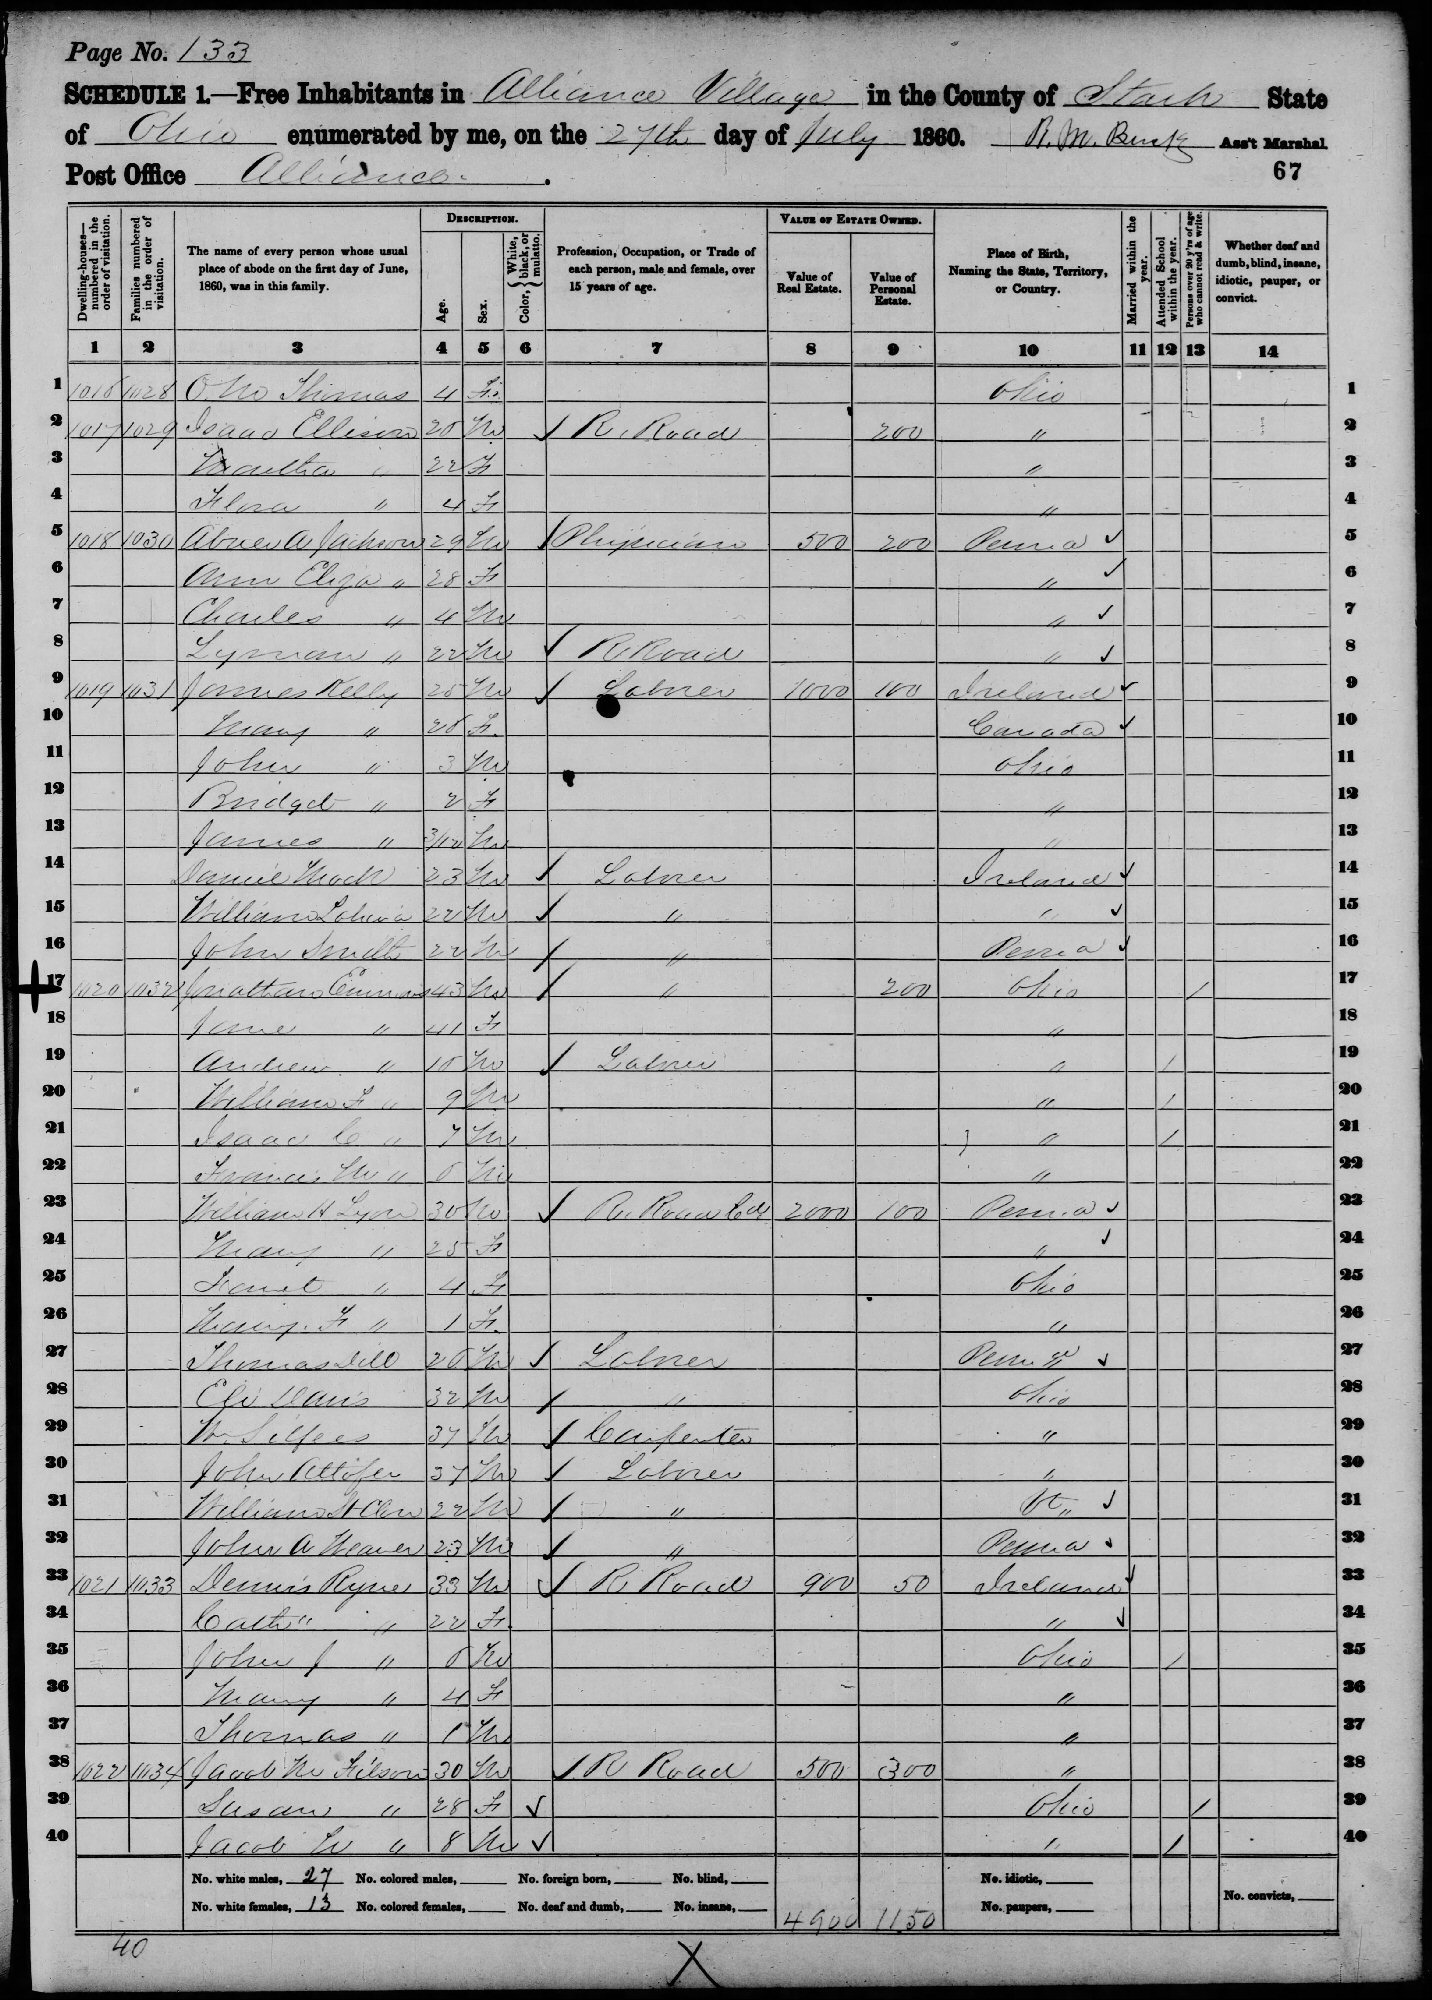 Page No. 133
SCHEDULE 1.—Free Inhabitants in Alliance Village in the County of Stark State
of Ohio enumerated by me, on the 27th day of July 1860. R. M. Ass't Marshal.
Post Office Alliance. 67
Dwelling-houses—numbered in the order of visitation.
Families numbered in the order of visitation.
The name of every person whose usual place of abode on the first day of June, 1860, was in this family.
Description.
Age.
Sex.
Color, { White, black, or mulatto.
Profession, Occupation, or Trade of each person, male and female, over 15 years of age.
Value of Estate Owned.
Value of Real Estate.
Value of Personal Estate.
Place of Birth, Naming the State, Territory, or Country.
Married within the year.
Attended School within the year.
Persons over 20 y'rs of age who cannot read & write.
Whether deaf and dumb, blind, insane, idiotic, pauper, or convict.
1 2 3 4 5 6 7 8 9 10 11 12 13 14
1 1016 1028 Thomas 4 F. Ohio 1
2 1017 1029 Isaac Ellison M R. Road 200 " 2
3 Martha " 22 F " 3
4 Flora " 4 F " 4
5 1018 1030 Abner A Jackson 29 M Physician 500 200 Penna 5
6 Ann Eliza " 28 F " 6
7 Charles " 4 M " 7
8 Lyman " 22 M R Road " 8
9 1019 1031 James Kelly M Laborer 1000 100 Ireland 9
10 Mary " F. Canada 10
11 John " 3 M Ohio 11
12 Bridget " 2 F " 12
13 James " 3/12 M " 13
14 Daniel 23 M Laborer Ireland 14
15 William 22 M " " 15
16 John Smith 22 M " Penna 16
17 1020 1032 Jonathan 43 M " 200 Ohio / 17
18 Jane " 41 F " 18
19 Andrew " M Laborer " / 19
20 William F " 9 M " / 20
21 Isaac C " 7 M " / 21
22 Francis M " M " 22
23 William H Lyon 30 M R. Road 2000 100 Penna 23
24 Mary " 25 F " 24
25 " 4 F Ohio 25
26 F " 1 F. " 26
27 Thomas Dill M Laborer Penna 27
28 Eli Davis 32 M " Ohio 28
29 37 M Carpenter " 29
30 John 37 M Laborer " 30
31 William 22 M " " 31
32 John A Weaver 23 M " Penna 32
33 1021 1033 Dennis Ryne 33 M R. Road 900 50 Ireland 33
34 Cath " 22 F. " 34
35 John J " M Ohio / 35
36 Mary " 4 F " 36
37 Thomas " 1 M " 37
38 1022 1034 Jacob M Filson 30 M R Road 500 300 " 38
39 Susan " 28 F Ohio / 39
40 Jacob " 8 M " / 40
No. white males, 27 No. colored males, No. foreign born, No. blind, No. idiotic,
No. white females, 13 No. colored females, No. deaf and dumb, No. insane, 4900 1150 No. paupers, No. convicts,
40
X